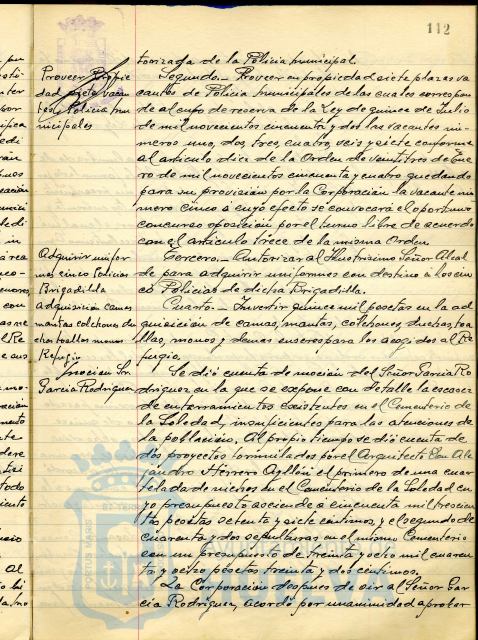 112
torizada de la Policia municipal.
Segundo.- Proveer en propiedad siete plazas va
cantes de Policia Municipales de las cuales correspon
de al cupo de reserva de la Ley de quince de Julio
de mil novecientos cincuenta y dos las vacantes nú-
meros uno, dos, tres, cuatro, seis y siete conforme
al artículo diez de la Orden de veintitres de Ene
ro de mil novecientos cincuenta y cuatro quedando
para su provisión por la Corporación la vacante nú
mero cinco a cuyo efecto se convocará el oportuno
concurso oposición por el turno libre de acuerdo
con el artículo trece de la misma Orden.
Tercero.- Autorizar al Ilustrisimo Señor Alcal
de para adquirir uniformes con destino a los cin
co Policias de dicha Brigadilla.
Cuarto.- Invertir quince mil pesetas en la ad
quisición de camas, mantas, colchones, duchas, toa
llas, monos y demas enseres para los acogidos al Re
fugio.
Se dió cuenta de moción del Señor García Ro
driguez en la que se expone con detalle la escasez
de enterramientos existentes en el Cementerio de
la Soledad, insuficientes para las atenciones de
la población. Al propio tiempo se dió cuenta de
dos proyectos formulados por el Arquitecto Don Ale
jandro Herrero Ayllón el primero de una cuar
telada de nichos en el Cementerio de la Soledad cu
yo presupuesto asciende a cincuenta mil trescien
tas pesetas setenta y siete centimos, y el segundo de
cuarenta y dos sepulturas en el mismo Cementerio
con un presupuesto de treinta y ocho mil cuaren
ta y ocho pesetas treinta y dos centimos.
La Corporación despues de oir al Señor Gar
cia Rodriguez, acordó por unanimidad aprobar
Proveer Propie
dad siete vacan
tes Policia mu
nicipales
Adquirir unifor
mes cinco Policias
Brigadilla
adquisición camas
mantas colchones du
chas toallas monos
Refugio
Moción Sr.
Garcia Rodriguez
PORTUS MARIS